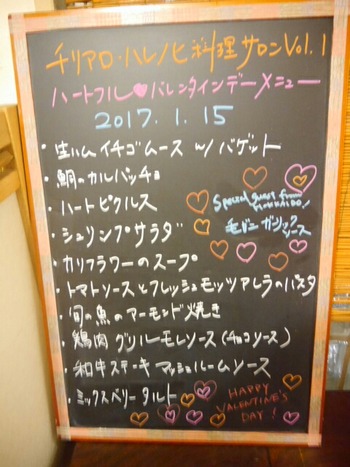 チリアロ・ハレノヒ料理サロンVol.1
ハートフル♥バレンタインデーメニュー
2017.1.15
・生ハムイチゴムース w/バゲット
・鯛のカルパッチョ
・ハートピクルス
・シュリンプサラダ
・カリフラワーのスープ
・トマトソースとフレッシュモッツァレラのパスタ
・旬の魚のアーモンド焼き
・鶏肉グリルモレソース(チョコソース)
・和牛ステーキマッシュルームソース
・ミックスベリータルト
Special guest from
HOKKAIDO!
ガーリック
ソース
HAPPY
VALENTINE'S
DAY!